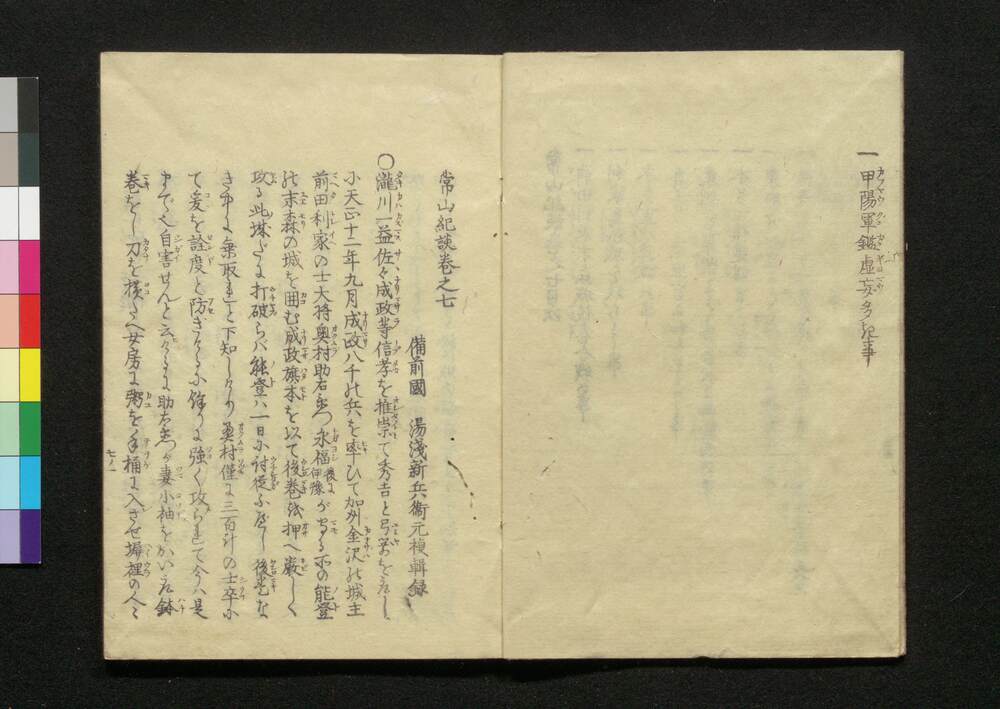 一甲陽軍鑑虚妄多き事
常山紀談巻之七
備前國 湯淺新兵衞元禎輯録
○瀧川一益佐々成政等信孝を推崇て秀吉と弓箭を亦し
小天正十二年九月成政八千の兵を率ひて加州金沢の城主
前田利家の士大将奥村助右衛門永福後に伊豫が守る所の能登
の末森の城を囲む成政旗本を以て後巻を押へ厳しく
攻る此城だに打破らバ能登ハ一日に討従ふべし後巻な
き中に乗取れと下知しけり奥村僅に三百計の士卒に
て爰を詮度と防ぎけるに余りに強く攻られて今ハ是
までぞ自害せんと云けるに助右衛門が妻小袖をかい取鉢
巻をし刀を横たへ女房に粥を手桶に入させ塀裡の人々
七ノ一